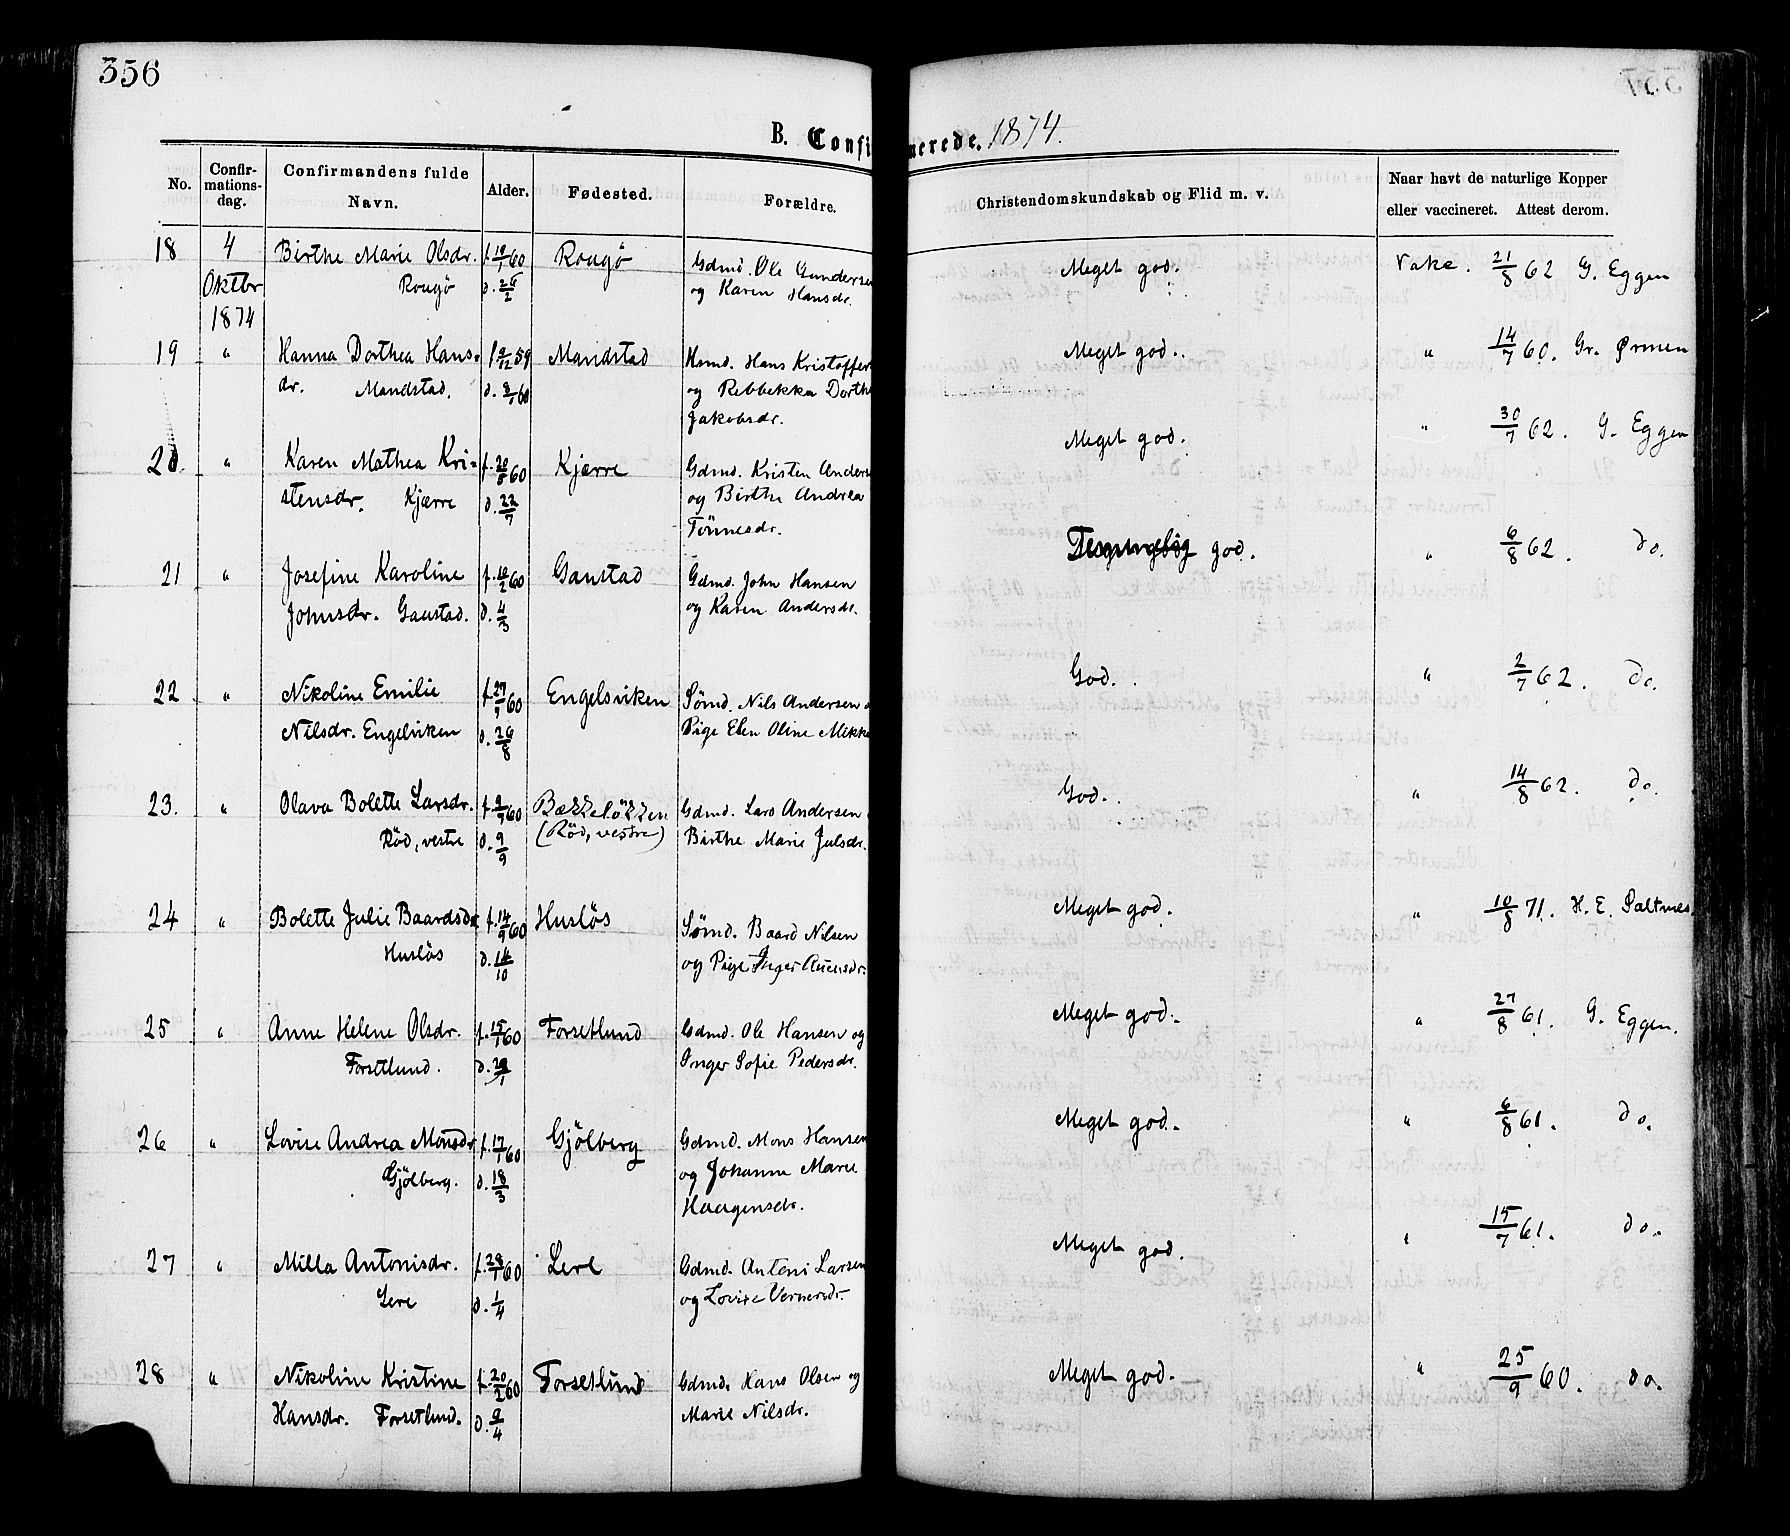 356
B. Confi
No.
Confir-
mations-
dag.
Confirmandens fulde
Navn.
Alder.
Fødested.
Forældre.
18
4
Oktbr
1874
Birthe Marie Olsdr.
Rougø
f. 19/1 60
d. 26/2
Rougø
Gdmd. Ole Gundersen
og Karen Hansdr.
19
"
Hanna Dorthea Hans-
dr. Mandstad.
f 9/12 59
d. 8/1 60
Mandstad
Hsmd. Hans Kristoffer
og Rebbekka Dorth
Jakobsdr.
20.
"
Karen Mathea Kri-
stensdr. Kjærre
f. 20/6 60
d. 22/7
Kjærre
Gdmd. Kristen Anders
og Birthe Andrea
Tönnesdr.
21
"
Josefine Karoline
Johnsdr. Gaustad.
f. 10/2 60
d. 4/3
Gaustad
Gdmd. John Hansen
og Karen Andersdr.
22
"
Nikoline Emilie
Nilsdr. Engelviken
f. 27/7 60
d. 26/8
Engelsviken
Sømd. Nils Andersen
Pige Elen Oline Mikk
23.
"
Olava Bolette Larsdr.
Röd, vestre
f. 9/7 60
d. 9/9
Bækkelökken
(Röd, vestre)
Gdmd. Lars Andersen
Birthe Marie Julsdr.
24
"
Bolette Julie Baardsdr
Huslös
f. 14/9 60
d. 14/10
Huslös
Sømd. Baard Nilsen
og Pige Inger Auensdr.
25
"
Anne Helene Olsdr.
Forsetlund.
f. 15/1 60
d. 29/1
Forsetlund
Gdmd. Ole Hansen og
Inger Sofie Pedersdr.
26
"
Lovise Andrea Monsdr
Gjölberg.
f. 17/1 60
d. 18/3
Gjölberg
Gdmd. Mons Hansen
og Johanne Marie
Haagensdr.
27
"
Milla Antonisdr.
Lere
f. 28/1 60
d. 1/4
Lere
Gdmd. Antoni Larsen
og Lovise Vernersdr.
28
"
Nikoline Kristine
Hansdr. Forsetlund.
f. 20/2 60
d. 9/4
Forsetlund
Gdmd. Hans Olsen og
Marie Nilsdr.
merede. 1874.
Christendomskundskab og Flid m. v.
Naar havt de naturlige Kopper
eller vaccineret. Attest derom.
Meget god. Vake. 21/8 62 G. Eggen
Meget god. " 14/7 60. Gr. Ørmen
Meget god. " 30/7 62. G. Eggen
god. " 6/8 62. do.
God. " 2/7 62. do.
God. " 14/8 62. do.
Meget god. " 10/8 71. H. E. Saltnes.
Meget god. " 27/8 61. G. Eggen.
Meget god. " 6/8 61. do.
Meget god. " 15/7 61. do.
Meget god. " 25/9 60. do.